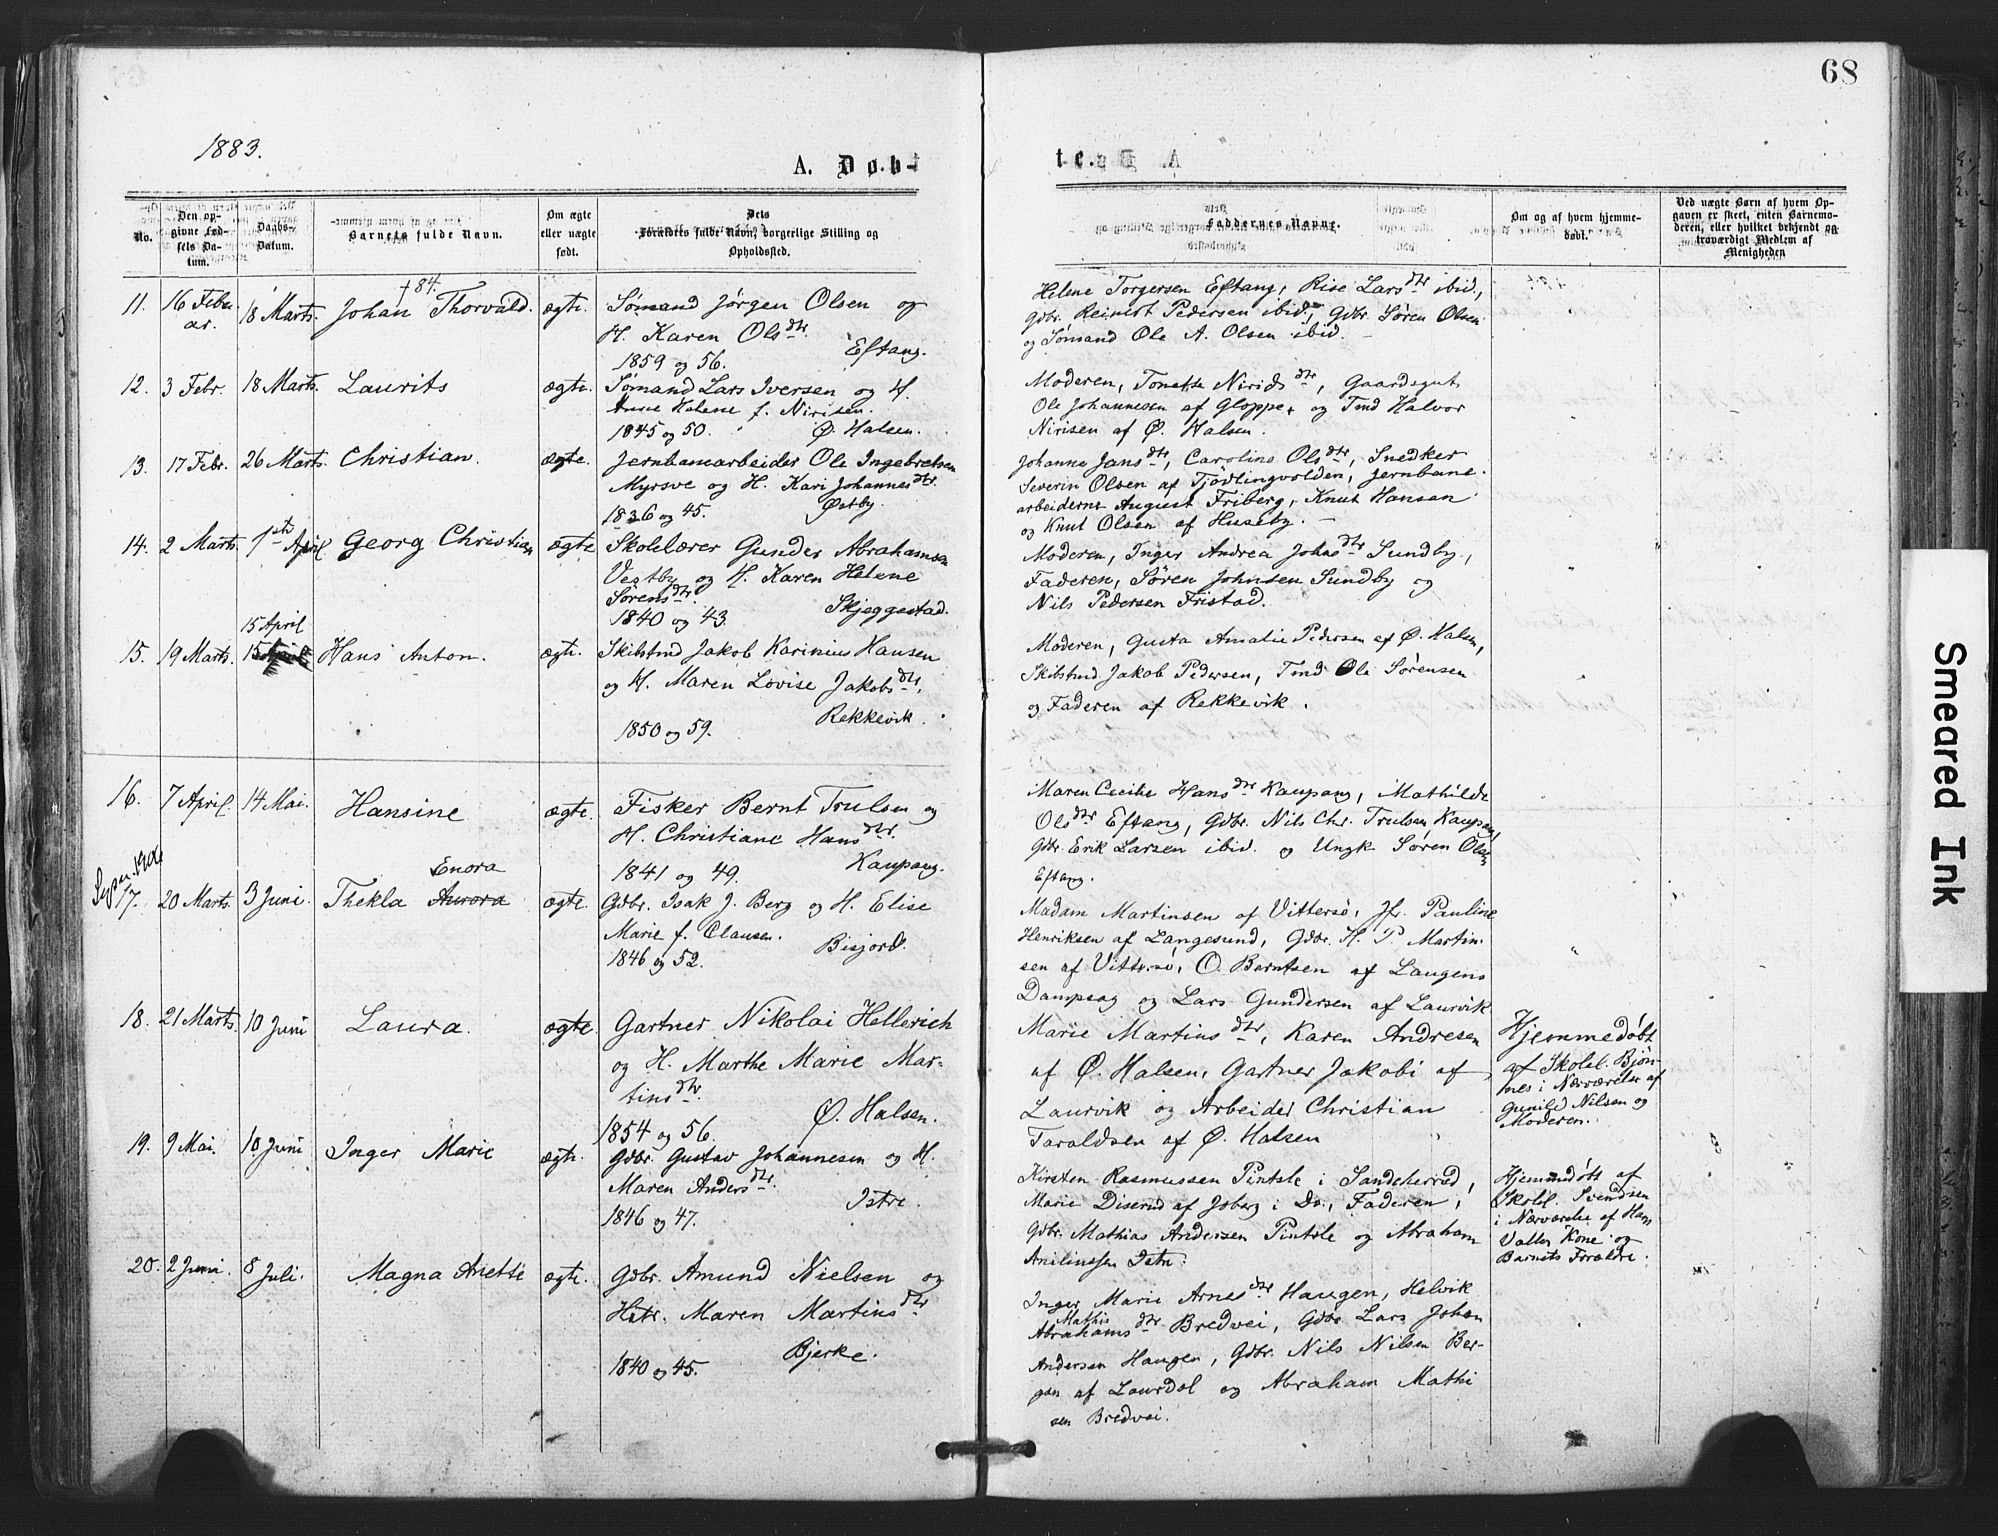 68
1883.
A. Døb-
t e.
No.
Den op-
givne Fød-
sels Da-
tum.
Daabs-
Datum.
Barnets fulde Navn.
Om ægte
eller uægte
født.
Dets
Forældres fulde Navn, borgerlige Stilling og
Opholdssted.
Faddernes Navne.
Om og af hvem hjemme-
døbt.
Ved uægte Børn af hvem Op-
gaven er skeet, enten Barnemo-
deren, eller hvilket bekjendt og
troværdigt Medlem af
Menigheden
11. 16 Febru-
ar. 18 Marts. Johan Thorvald. +84. ægte.
Sømand Jørgen Olsen og
H. Karen Olsdtr.
1859 og 56. Eftang.
Helene Torgersen Eftang, Rise Larsdtr ibid,
Gdbr. Reinert Pedersen ibid, Gdbr. Søren Olsen
og Sømand Ole A. Olsen ibid. –
12. 3 Febr. 18 Marts. Laurits ægte.
Sømand Lars Iversen og H.
Anne Helene f. Nirisen.
1845 og 50. Ø. Halsen.
Moderen, Tonette Niridsdtr, Gaardsgut
Ole Johannesen af Gloppe, og Tmd Halvor
Nirisen af Ø. Halsen.
13. 17 Febr. 26 Marts. Christian. ægte.
Jernbanearbeider Ole Ingebretsen
Myrsve og H. Kari Johannesdtr.
1836 og 45. Østby.
Johanne Jansdtr, Caroline Olsdtr, Snedker
Severin Olsen af Tjødlingvolden, Jernbane-
arbeiderne August Friberg, Knut Hansen
og Knut Olsen af Huseby. –
14. 2 Marts. 1ste April Georg Christian ægte
Skolelærer Gunder Abrahamsen
Vestby og H. Karen Helene
Sørensdtr.
1840 og 43. Skjeggestad.
Moderen, Inger Andrea Johnsdtr Sundby,
Faderen, Søren Johnsen Sundby og
Nils Pedersen Fristad.
15. 19 Marts. 15 April
15 April Hans Anton. ægte.
Skibstmd Jakob Karinius Hansen
og H. Maren Lovise Jakobsdtr,
1850 og 59. Rekkevik.
Moderen, Gusta Amalie Pedersen af Ø. Halsen,
Skibstmd Jakob Pedersen, Tmd Ole Sørensen
og Faderen af Rekkevik.
16. 7 April. 14 Mai. Hansine ægte.
Fisker Bernt Trulsen og
H. Christiane Hansdtr.
1841 og 49. Kaupang.
Maren Cecilie Hansdtr Kaupang, Mathilde
Olsdtr Eftang, Gdbr. Nils Chr. Trulsen Kaupang,
Gdbr. Erik Larsen ibid. og Ungk Søren Olsen
Eftang.
17. 20 Marts. 3 Juni. Thekla Aurora Enora ægte.
Gdbr. Isak J. Berg og H. Elise
Marie f. Clausen.
1846 og 52. Bisjord.
Madam Martinsen af Vittersø, Jfr. Pauline
Henriksen af Langesund, Gdbr. H. P. Martin-
sen af Vittersø, O. Berntsen af Laugens
Dampsag og Lars Gundersen af Laurvik
18. 21 Marts. 10 Juni Laura. ægte.
Gartner Nikolai Hellerich
og H. Marthe Marie Mar-
tinsdtr.
1854 og 56. Ø. Halsen.
Marie Martinsdtr, Karen Andresen
af Ø. Halsen, Gartner Jakobi af
Laurvik og Arbeider Christian
Taraldsen af Ø. Halsen
Hjemmedøbt
af Skolel. Bjøn-
nes i Nærværelse af
Gunild Nilsen og
Moderen.
19. 9 Mai. 10 Juni Inger Marie ægte.
Gdbr. Gustav Johannesen og H.
Maren Andersdtr.
1846 og 47. Istre.
Kirsten Rasmussen Pintsle i Sandeherred,
Marie Diserud af Joberg i Do., Faderen,
Gdbr. Mathias Andersen Pintsle og Abraham
Istre.
Hjemmedøbt af
Skolel. Svendsen
i Nærværelse af Hans
Valles Kone og
Barnets Forældre.
20. 2 Juni. 8 Juli. Magna Anette ægte.
Gdbr. Amund Nielsen og
Hstr. Maren Martinsdtr
1840 og 45. Bjerke.
Inger Marie Arnesdtr Haugen, Helvik
Mathis
Abrahamsdtr Bredvei, Gdbr. Lars Johan
Andersen Haugen, Gdbr. Nils Nilsen Ber-
gan af Laurdal og Abraham Mathi
sen Bredvei.
Smeared Ink